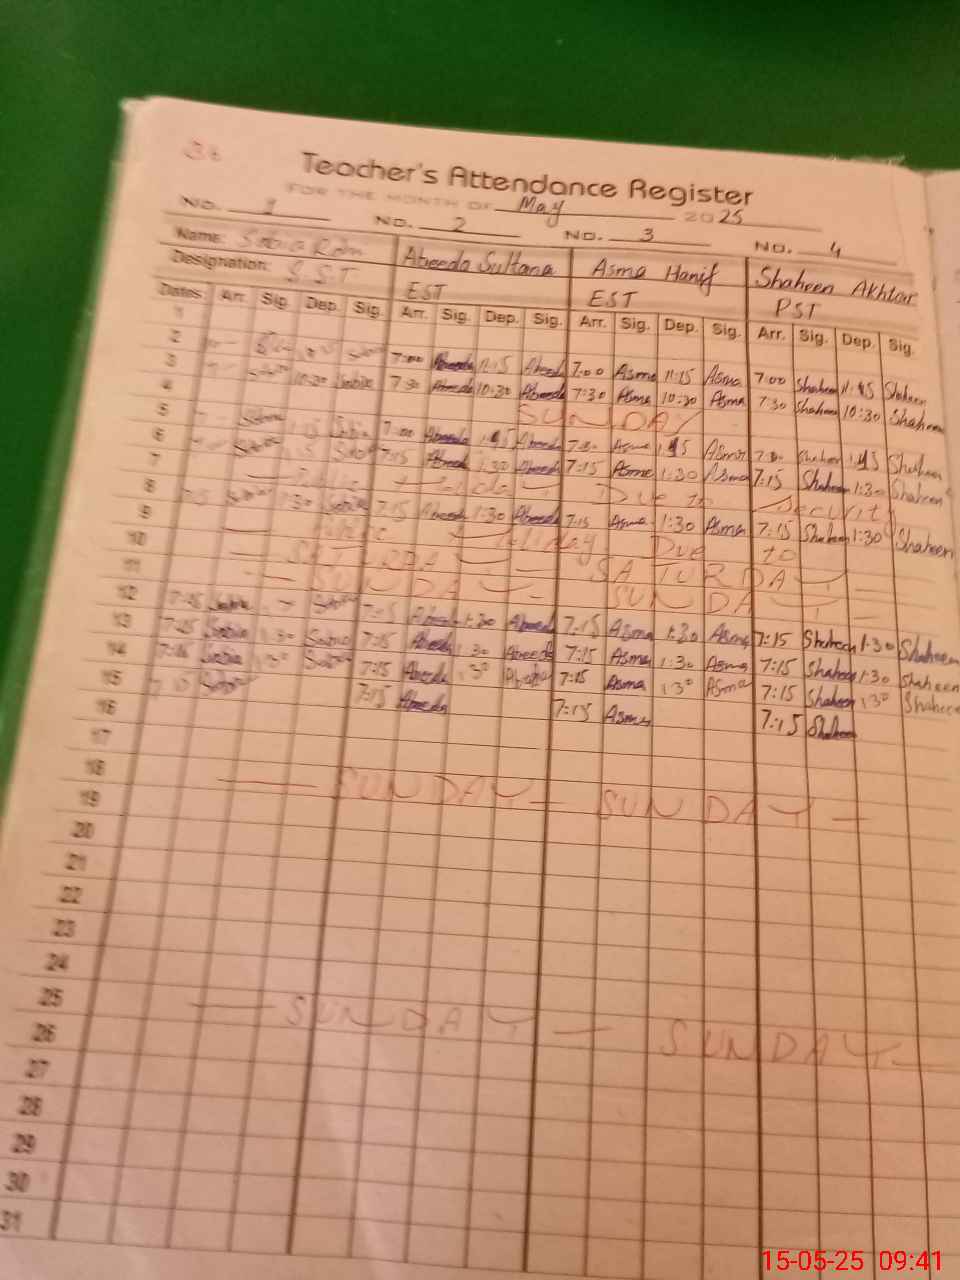 Teacher's Attendance Register
FOR THE MONTH OF May 2025
NO. 1 NO. 2 NO. 3 NO. 4
Name: Sobia Abeeda Sultana Asma Hanif Shaheen Akhtar
Designation: S.S.T EST EST PST
Dates Arr. Sig. Dep. Sig. Arr. Sig. Dep. Sig. Arr. Sig. Dep. Sig. Arr. Sig. Dep. Sig.
1
2 7:00 Abeeda 11:15 Abeeda 7:00 Asma 11:15 Asma 7:00 Shaheen 11:15 Shaheen
3 10:30 Sobia 7:30 Abeeda 10:30 Abeeda 7:30 Asma 10:30 Asma 7:30 Shaheen 10:30 Shaheen
4 SUNDAY
5 Sobia Sobia 7:00 Abeeda 1:45 Abeeda Asma 1:45 Asma Shaheen 1:45 Shaheen
6 Sobia Sobia 7:15 Abeeda 1:30 Abeeda 7:15 Asma 1:30 Asma 7:15 Shaheen 1:30 Shaheen
7 Public Holiday Due to Security
8 7:15 Sobia 1:30 Sobia 7:15 Abeeda 1:30 Abeeda 7:15 Asma 1:30 Asma 7:15 Shaheen 1:30 Shaheen
9 Public Holiday Due to
10 SATURDAY SATURDAY
11 SUNDAY SUNDAY
12 Sobia Sobia 7:15 Abeeda 1:30 Abeeda 7:15 Asma 1:30 Asma 7:15 Shaheen 1:30 Shaheen
13 Sobia 1:30 Sobia 7:15 Abeeda 1:30 Abeeda 7:15 Asma 1:30 Asma 7:15 Shaheen 1:30 Shaheen
14 Sobia 1:30 Sobia 7:15 Abeeda 1:30 Abeeda 7:15 Asma 1:30 Asma 7:15 Shaheen 1:30 Shaheen
15 Sobia 7:15 Abeeda 7:15 Asma 7:15 Shaheen
16
17
18 SUNDAY SUNDAY
19
20
21
22
23
24
25 SUNDAY SUNDAY
26
27
28
29
30
31
15-05-25 09:41